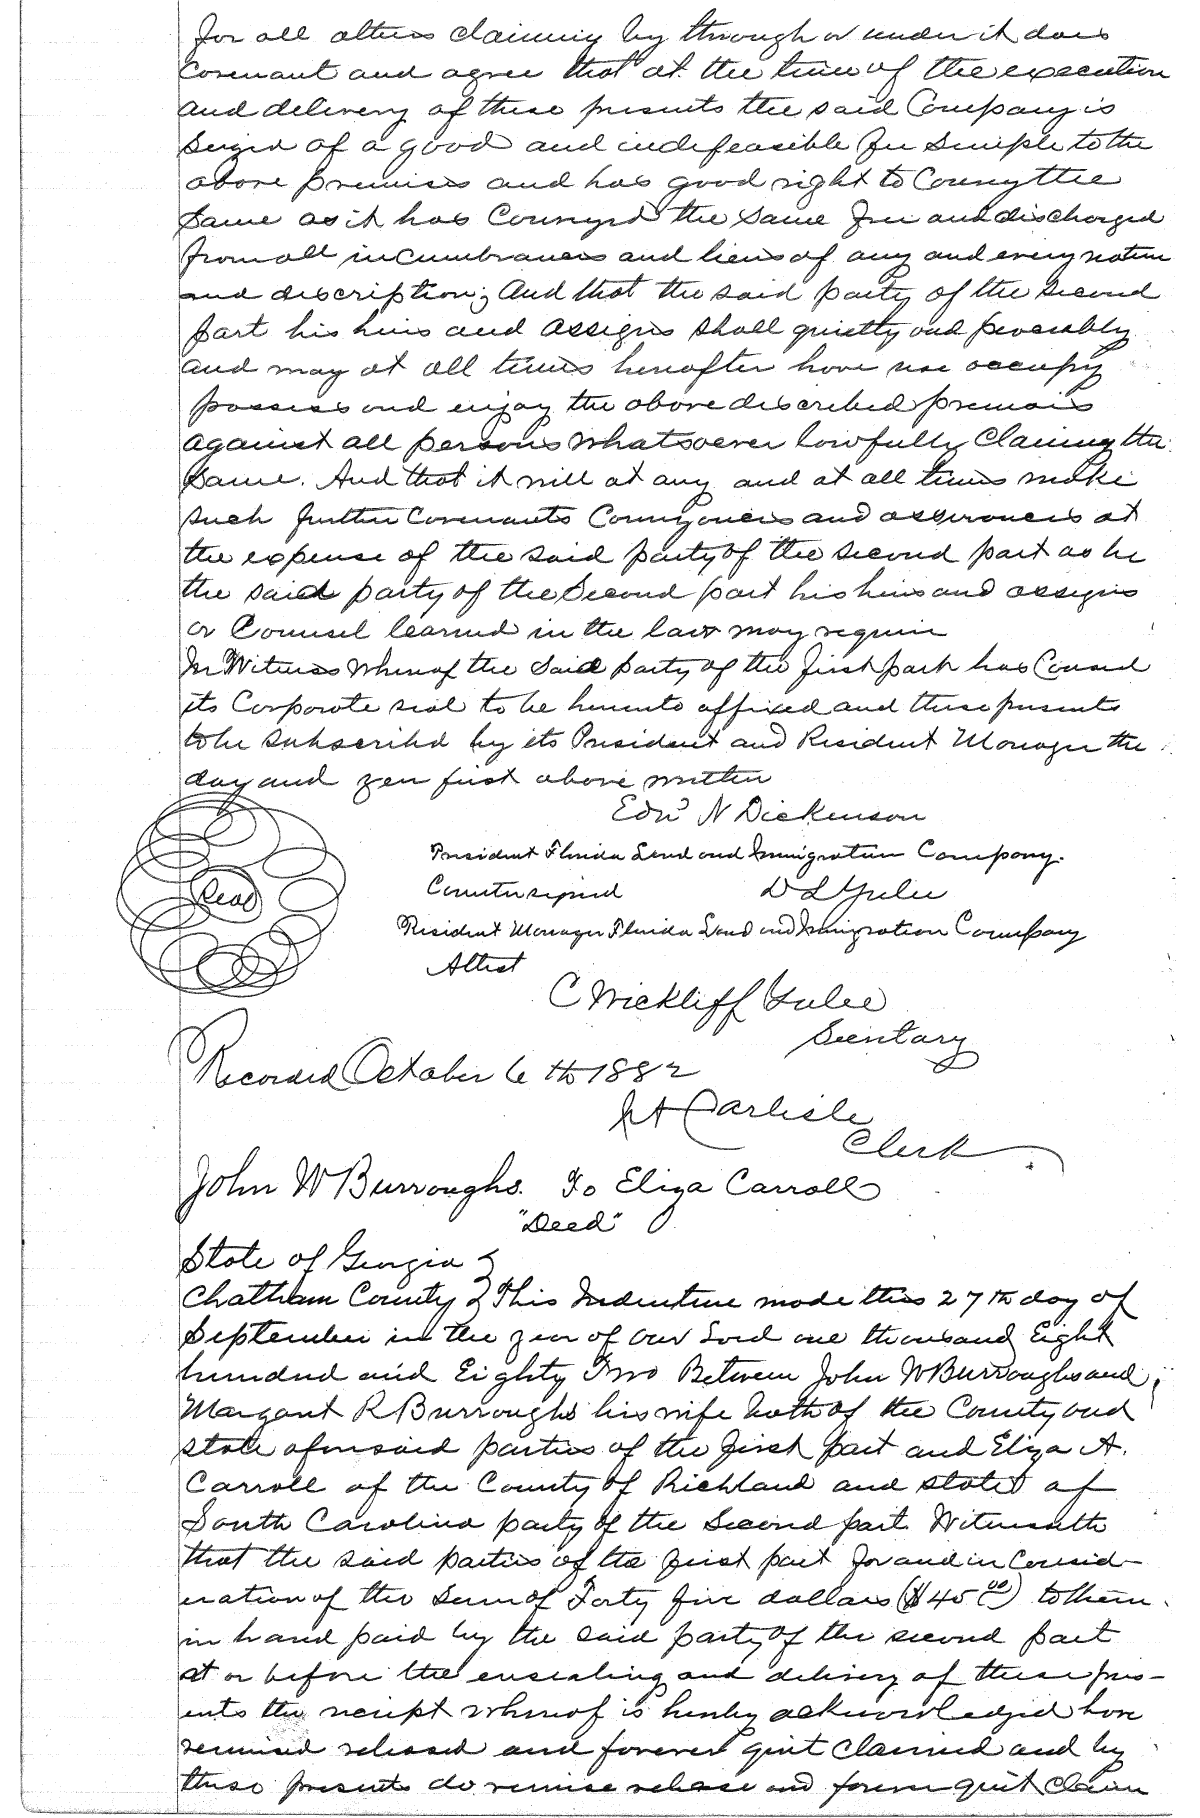 for all others claiming by through or under it does
Covenant and agree that at the time of the execution
and delivery of these presents the said Company is
Seized of a good and indefeasible fee Simple to the
above premises and has good right to Convey the
Same as it has Conveyed the Same free and discharged
from all incumbrances and liens of any and every nature
and discription; And that the said party of the Second
part his heirs and assigns shall quietly and peaceably
and may at all times hereafter have use occupy
possess and enjoy the above discribed premises
against all persons whatsoever lawfully Claiming the
Same. And that it will at any and at all times make
such further Covenants Conveyances and assurances at
the expense of the said party of the second part as he
the said party of the Second part his heirs and assigns
or Counsel learned in the law may require
In Witness Whereof the Said party of the first part has Caused
its Corporate seal to be hereunto affixed and these presents
to be subscribed by its President and Resident Manager the
day and year first above written
Edw N Dickenson
President Florida Land and Immigration Company.
Countersigned D L Yulee
Seal
Resident Manager Florida Land and Immigration Company
Attest
C Wickliff Yulee
Secretary
Recorded October 6th 1882
Carlisle
Clerk
John W Burroughs. To Eliza Carroll
"Deed"
State of Georgia }
Chatham County } This Indenture made this 27th day of
September in the year of our Lord one thousand Eight
hundred and Eighty Two Between John W Burroughs and
Margaret R Burroughs his wife both of the County and
state aforesaid parties of the first part and Eliza A.
Carroll of the County of Richland and state of
South Carolina party of the Second part Witnesseth
that the said parties of the first part for and in Consid-
eration of the Sum of Forty five dollars ($45.00) to them
in hand paid by the said party of the second part
at or before the ensealing and delivery of these pres-
ents the receipt whereof is hereby acknowledged have
remised released and forever quit Claimed and by
these presents do remise release and forever quit Claim